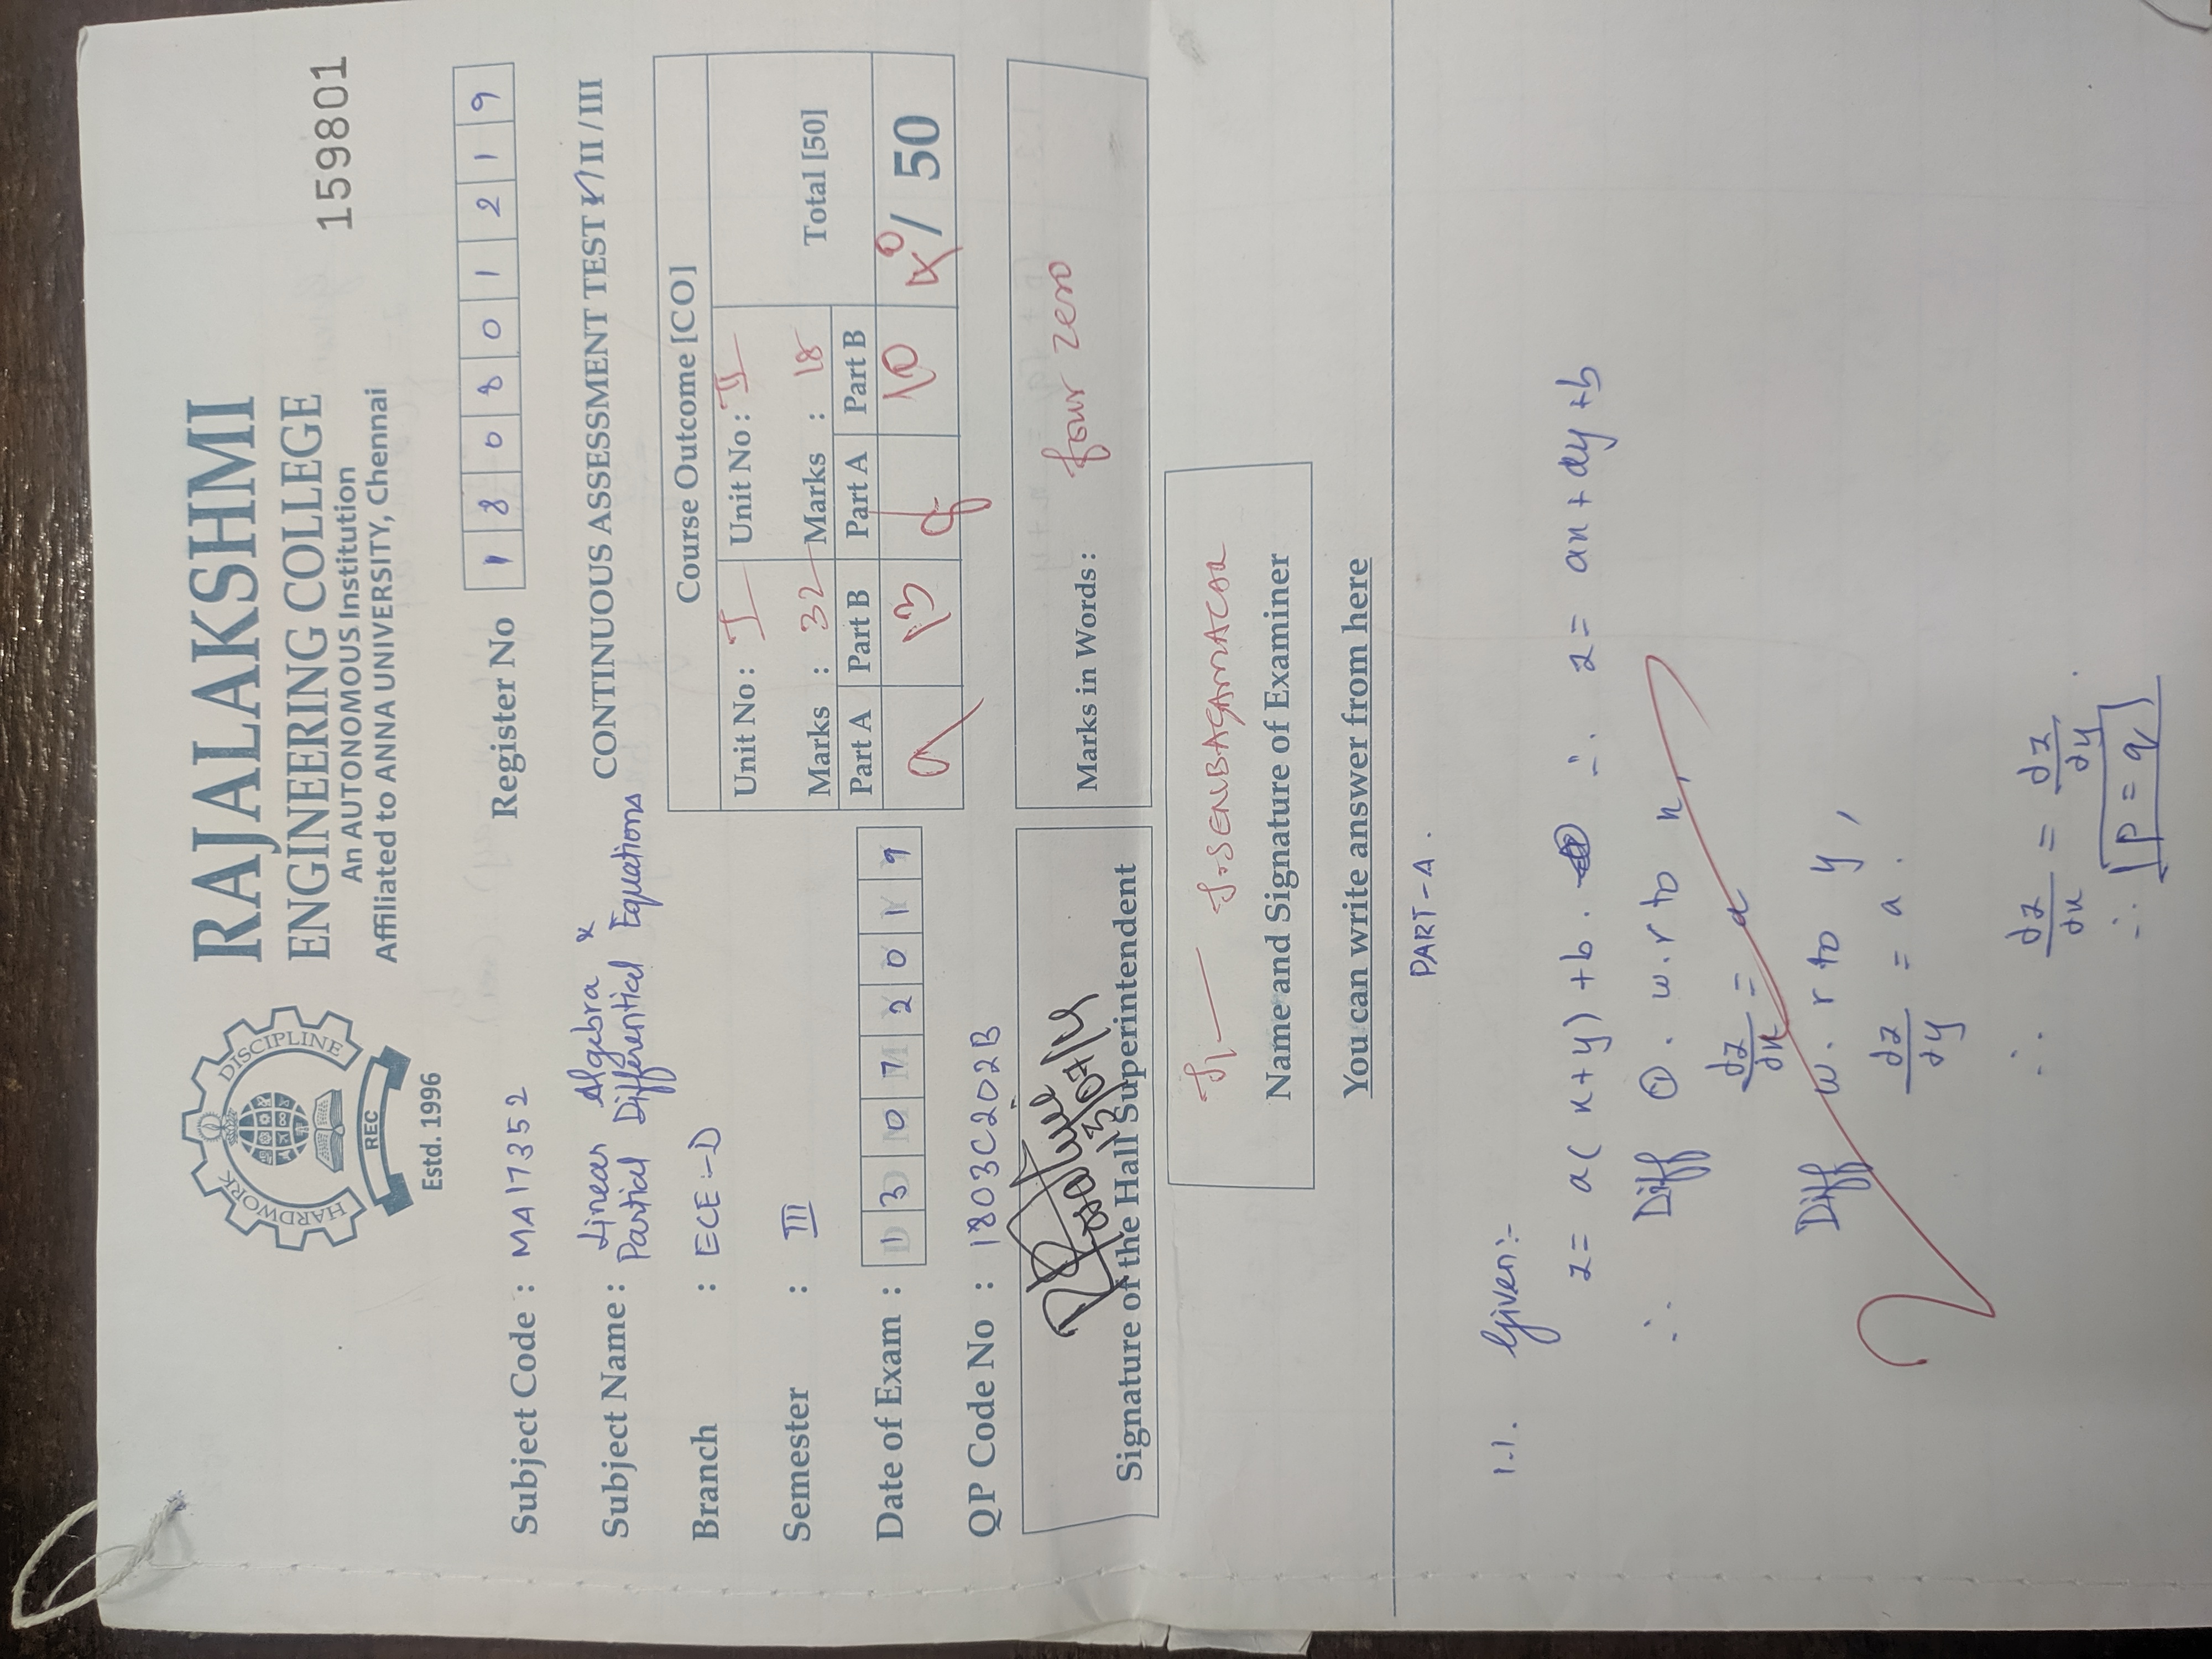 HARDWORK
DISCIPLINE
REC
Estd. 1996
RAJALAKSHMI
ENGINEERING COLLEGE
An AUTONOMOUS Institution
Affiliated to ANNA UNIVERSITY, Chennai
159801
Register No 1 8 0 8 0 1 2 1 9
Subject Code : MA17352
Subject Name : Linear Algebra &
Partial Differential Equations
CONTINUOUS ASSESSMENT TEST I / II / III
Branch : ECE - D
Semester : III
Date of Exam : 1 3 0 7 2 0 1 9
QP Code No : 1803C202B
Course Outcome [CO]
Unit No : I Unit No : II
Marks : 32 Marks : 18 Total [50]
Part A Part B Part A Part B
9 13 8 10 40 / 50
13/07/19
Signature of the Hall Superintendent
Marks in Words : four zero
J.SENBAGAMALAR
Name and Signature of Examiner
You can write answer from here
PART-A.
1.1. Given:-
z = a(x+y)+b. ∴ z = ax+ay+b
∴ Diff ①. w.r to x,
∂z/∂x = a
Diff w.r to y,
∂z/∂y = a.
2
∴ ∂z/∂x = ∂z/∂y.
∴ p = q